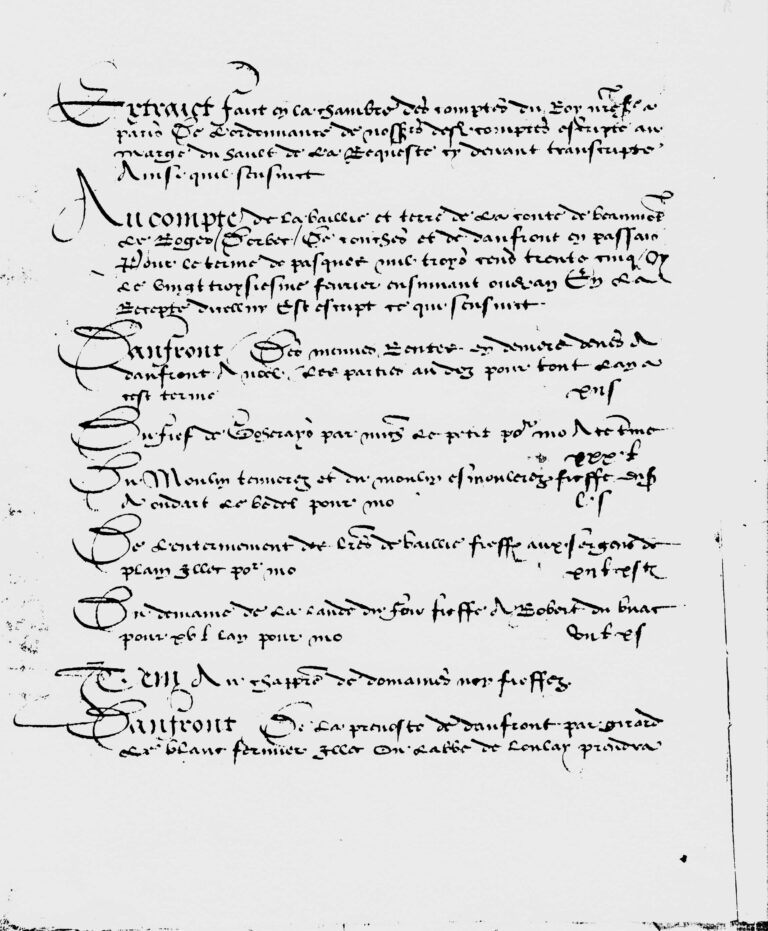 Extraict faict en la chambre des comptes du Roy nre sre a
paris De Lordonnance de nosseigrs desd. comptes escripte au
marge du hault de La Requeste cy devant transcripte
Ainsi quil sensuict
Au compte de la baillie et terre de La conte de beaumont
Le Roger, Conches et de danfront en passais
Pour le terme de pasques mil troys cens trente cinq,
Le vingt troysiesme fevrier ensuivant En La
Recepte dicelluy Est escript ce qui sensuict
Danfront Des menues Rentes en deniers deues A
danfront A noel, Les parties au dez pour tout Lan a
cest terme xiis
Du fief de par Le petit por mo A ce tme
xxx l
Du Moulin et du moulin fieffe
A Le bedel pour mo l s
De Lenterinement des lres de baillie fieffe aux sergens de
plain por mo
Du demaine de La Lande du four fieffe A Robert du
pour xv l Lan pour mo vii l xs
Item Au chappre de domaines non fieffez
Danfront De La prevoste de danfront par girard
Le blanc fermier Labbe de Lonlay prendra